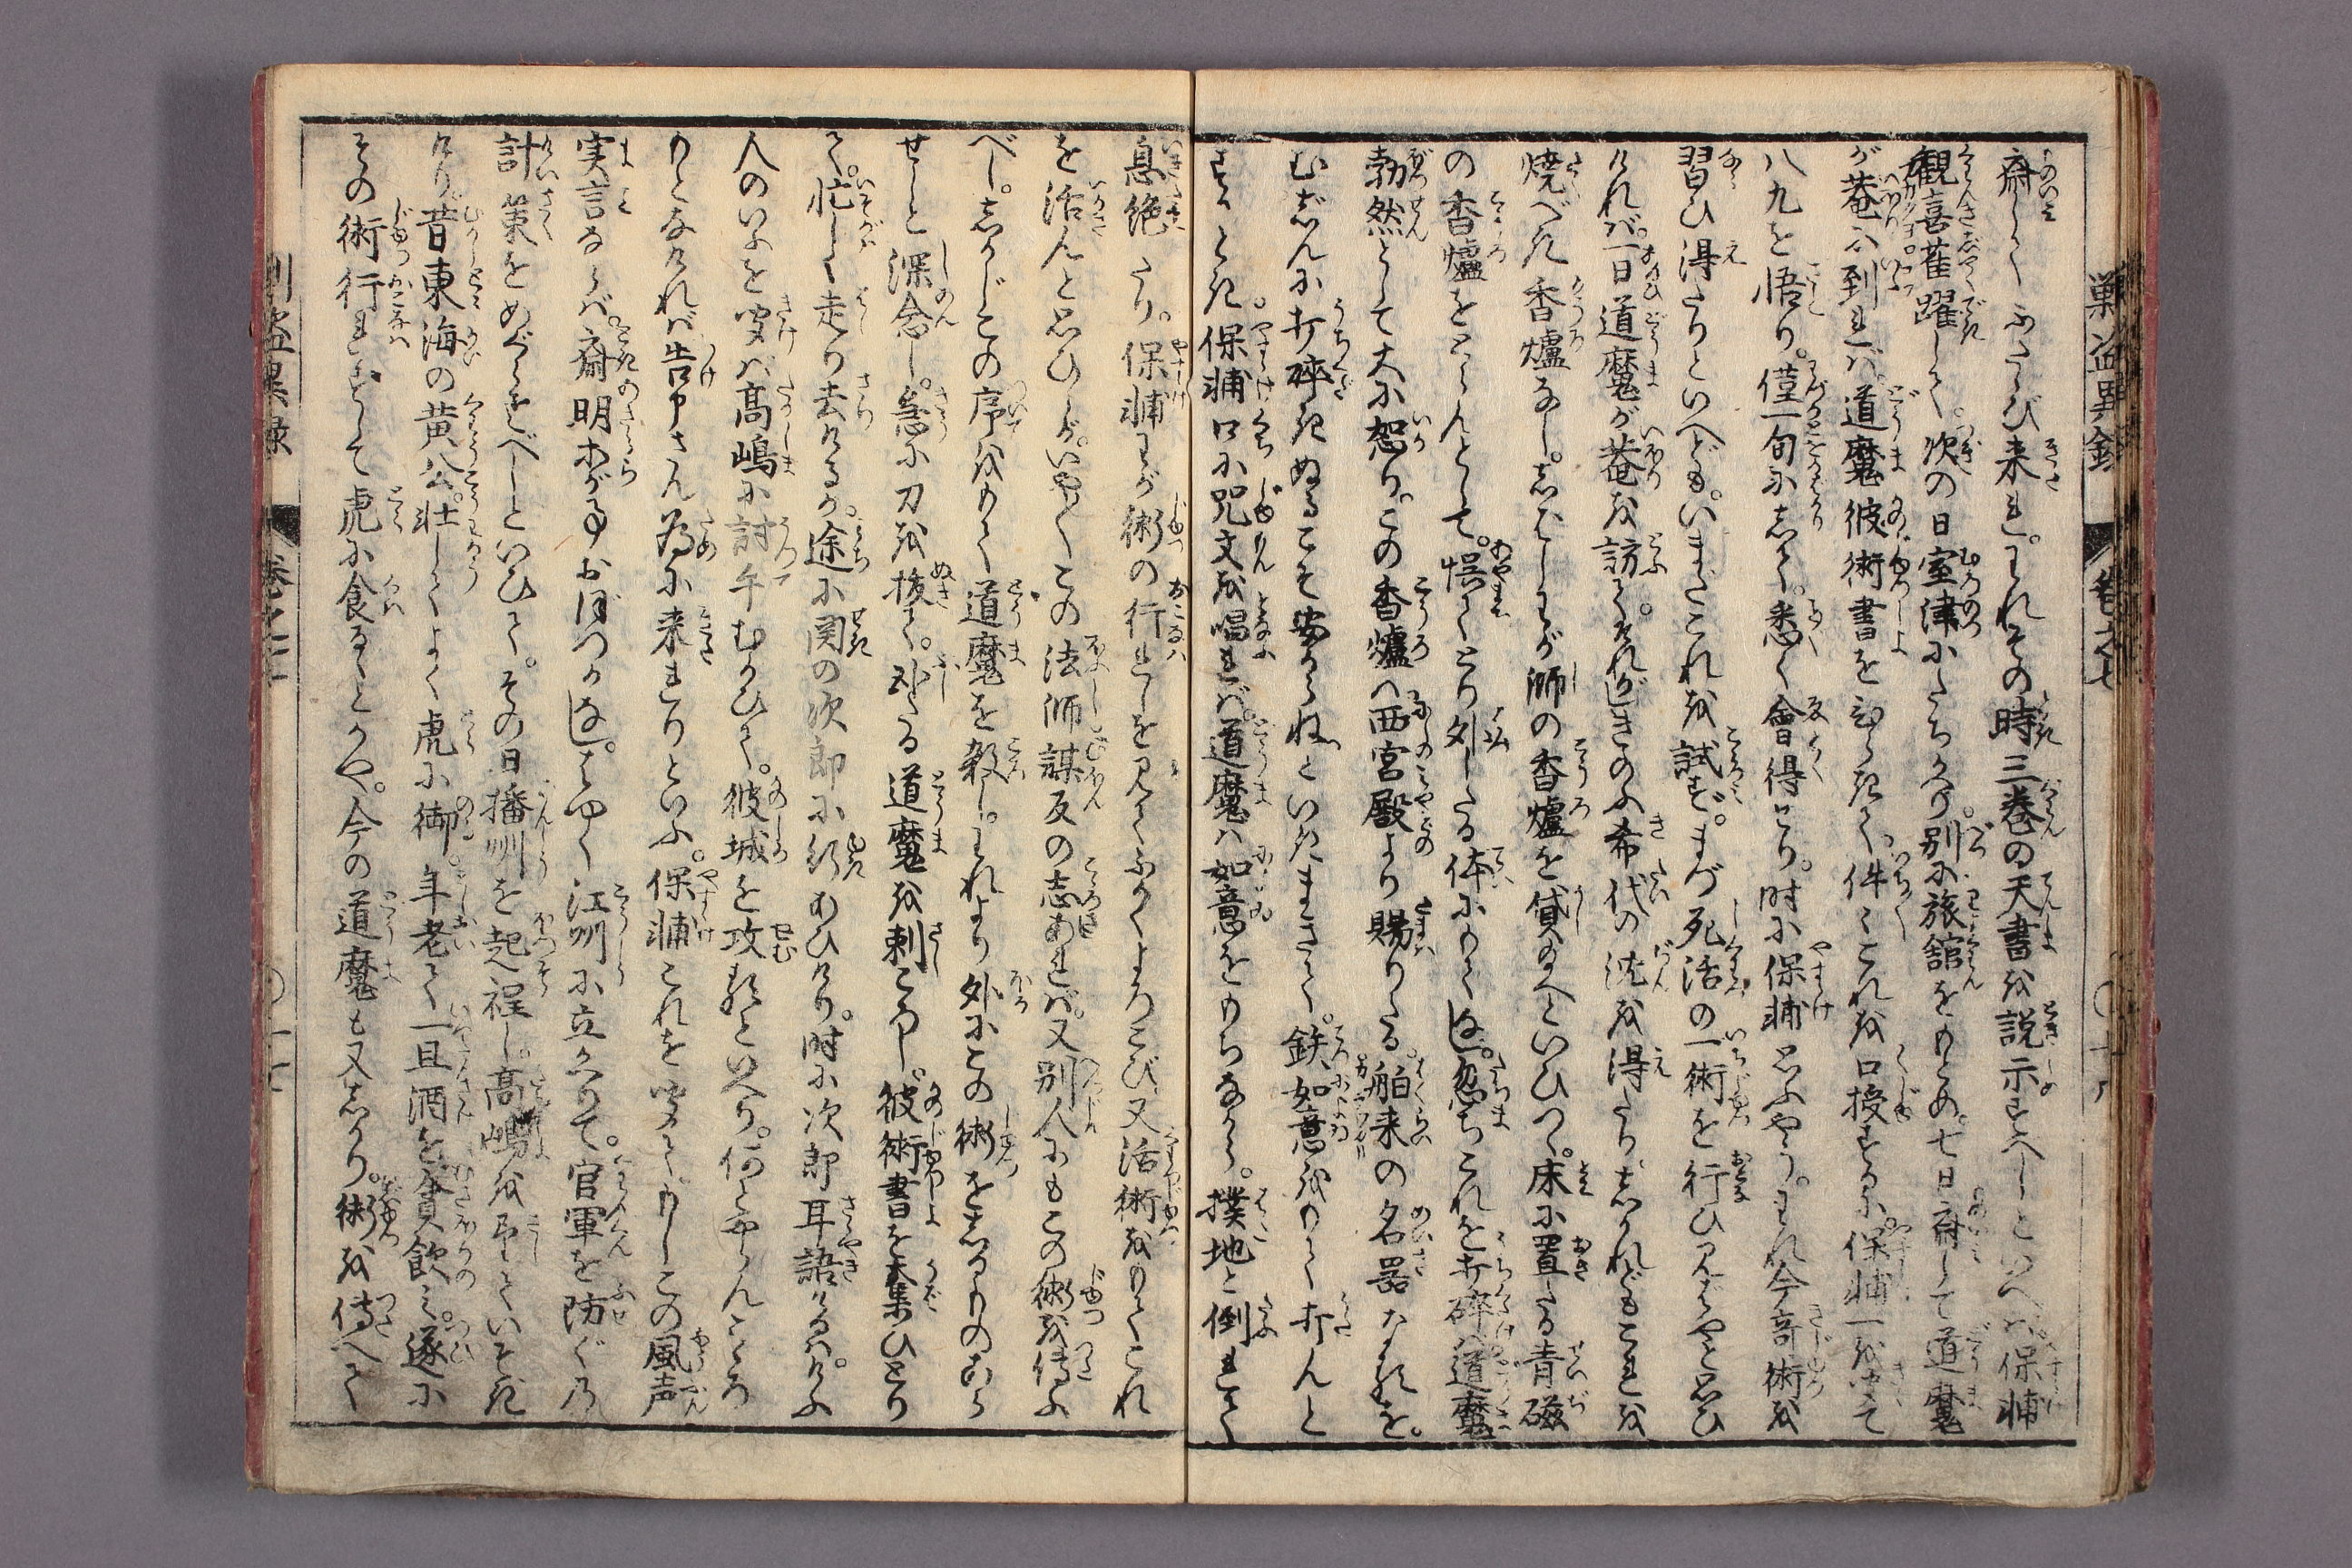 斎してふたゝび来れ。われその時三巻の天書を説示すべしといへば保輔
観喜雀躍して。次の日室津にたちかへり。別に旅舘をもとめ。七日斎して道魔
が菴に到れば。道魔彼術書をひらきて。件々これを口授するに。保輔一を聞て
八九を悟り。僅一旬にして。悉く會得せり。時に保輔思ふやう。われ今奇術を
習ひ得たりといへども。いまだこれを試ず。まづ死活の一術を行ひ見ばやと思ひ
ければ。一日道魔が菴を訪て。それがしきのふ希代の沈を得たり。しかれどもこれを
焼べき香爐なし。しばしわが師の香爐を貸給へといひつゝ。床に置たる青磁
の香爐をとらんとして。愰てとり外したる体にもてなし。忽ちこれを打碎ば道魔
勃然として大に怒り。この香爐へ西宮殿より賜りたる。舶来の名器なるを。
むざんに打碎きぬるこそ安からねといきまきて。鉄如意をもて打んと
するとき。保輔口に咒文を唱れば。道魔は如意をもちながら。撲地と倒れて
息絶たり。保輔わが術の行れしを見てふかくよろこび。又活術をもてこれ
を活んと思ひしが。いや〳〵この法師謀反の志あれば。又別人にもこの術を傳ふ
べし。しかじこの序をもて道魔を殺し。われより外にこの術をしるものなから
せんと深念し。急に刀を抜て。臥たる道魔を刺ころし。彼術書を奪ひとり
て。忙しく走り去けるが。途に関の次郎に行あひけり。時に次郎耳語けるは。けふ
人のいふを聞ば高嶋に討手むかひて。彼城を攻るといへり。何とやらんこゝろ
もとなければ告申さん為に来れりといふ。保輔これを聞て。もしこの風声
実言ならば。斎明おが事おぼつかなし。とゆく江州に立かへりて。官軍を防ぐ乃
計策をめぐらすべしといひて。その日播州を起程し。高嶋を望ていそぎ
けり。昔東海の黄公。壮してよく虎に御。年老て一旦酒を貪飲し。遂に
その術行れずして虎に食るゝとかや。今の道魔も又しかり。術を傳へて
巻之七